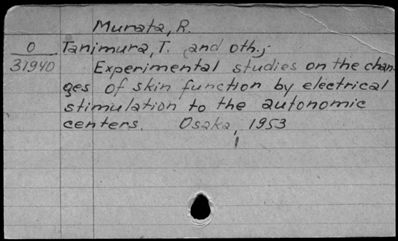 Murata, R.
O Tanimura, T. and oth.;
31940 Experimental studies on the chan-
ges of skin function by electrical
stimulation to the autonomic
centers. Osaka, 1953